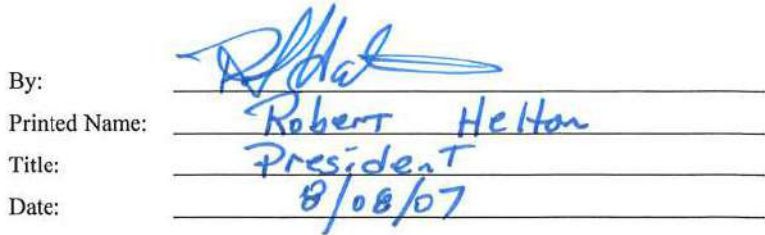 By:
Printed Name: Robert Helton
Title: President
Date: 8/08/07